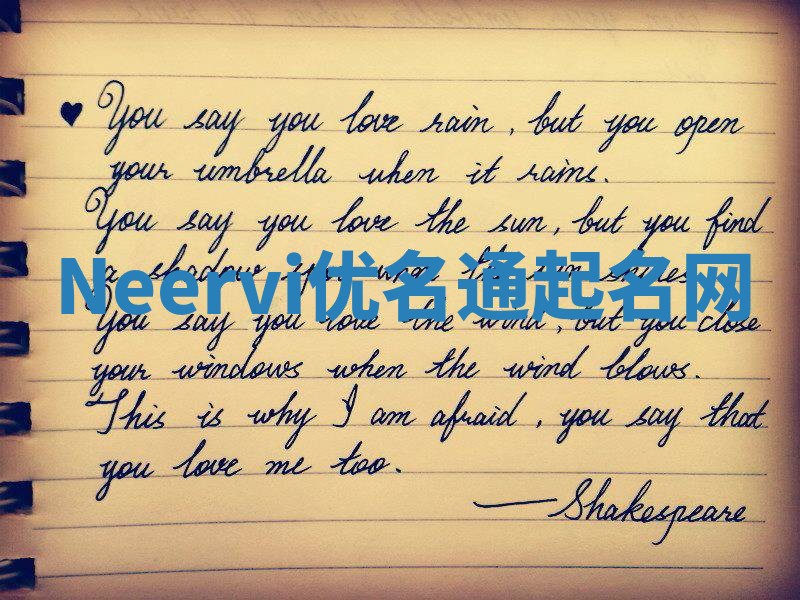 ♥ You say you love rain, but you open
your umbrella when it rains.
You say you love the sun, but you find
a shadow spot when the sun shines.
Neervi优名通起名网
You say you love the wind, but you close
your windows when the wind blows.
This is why I am afraid, you say that
you love me too.
— Shakespeare